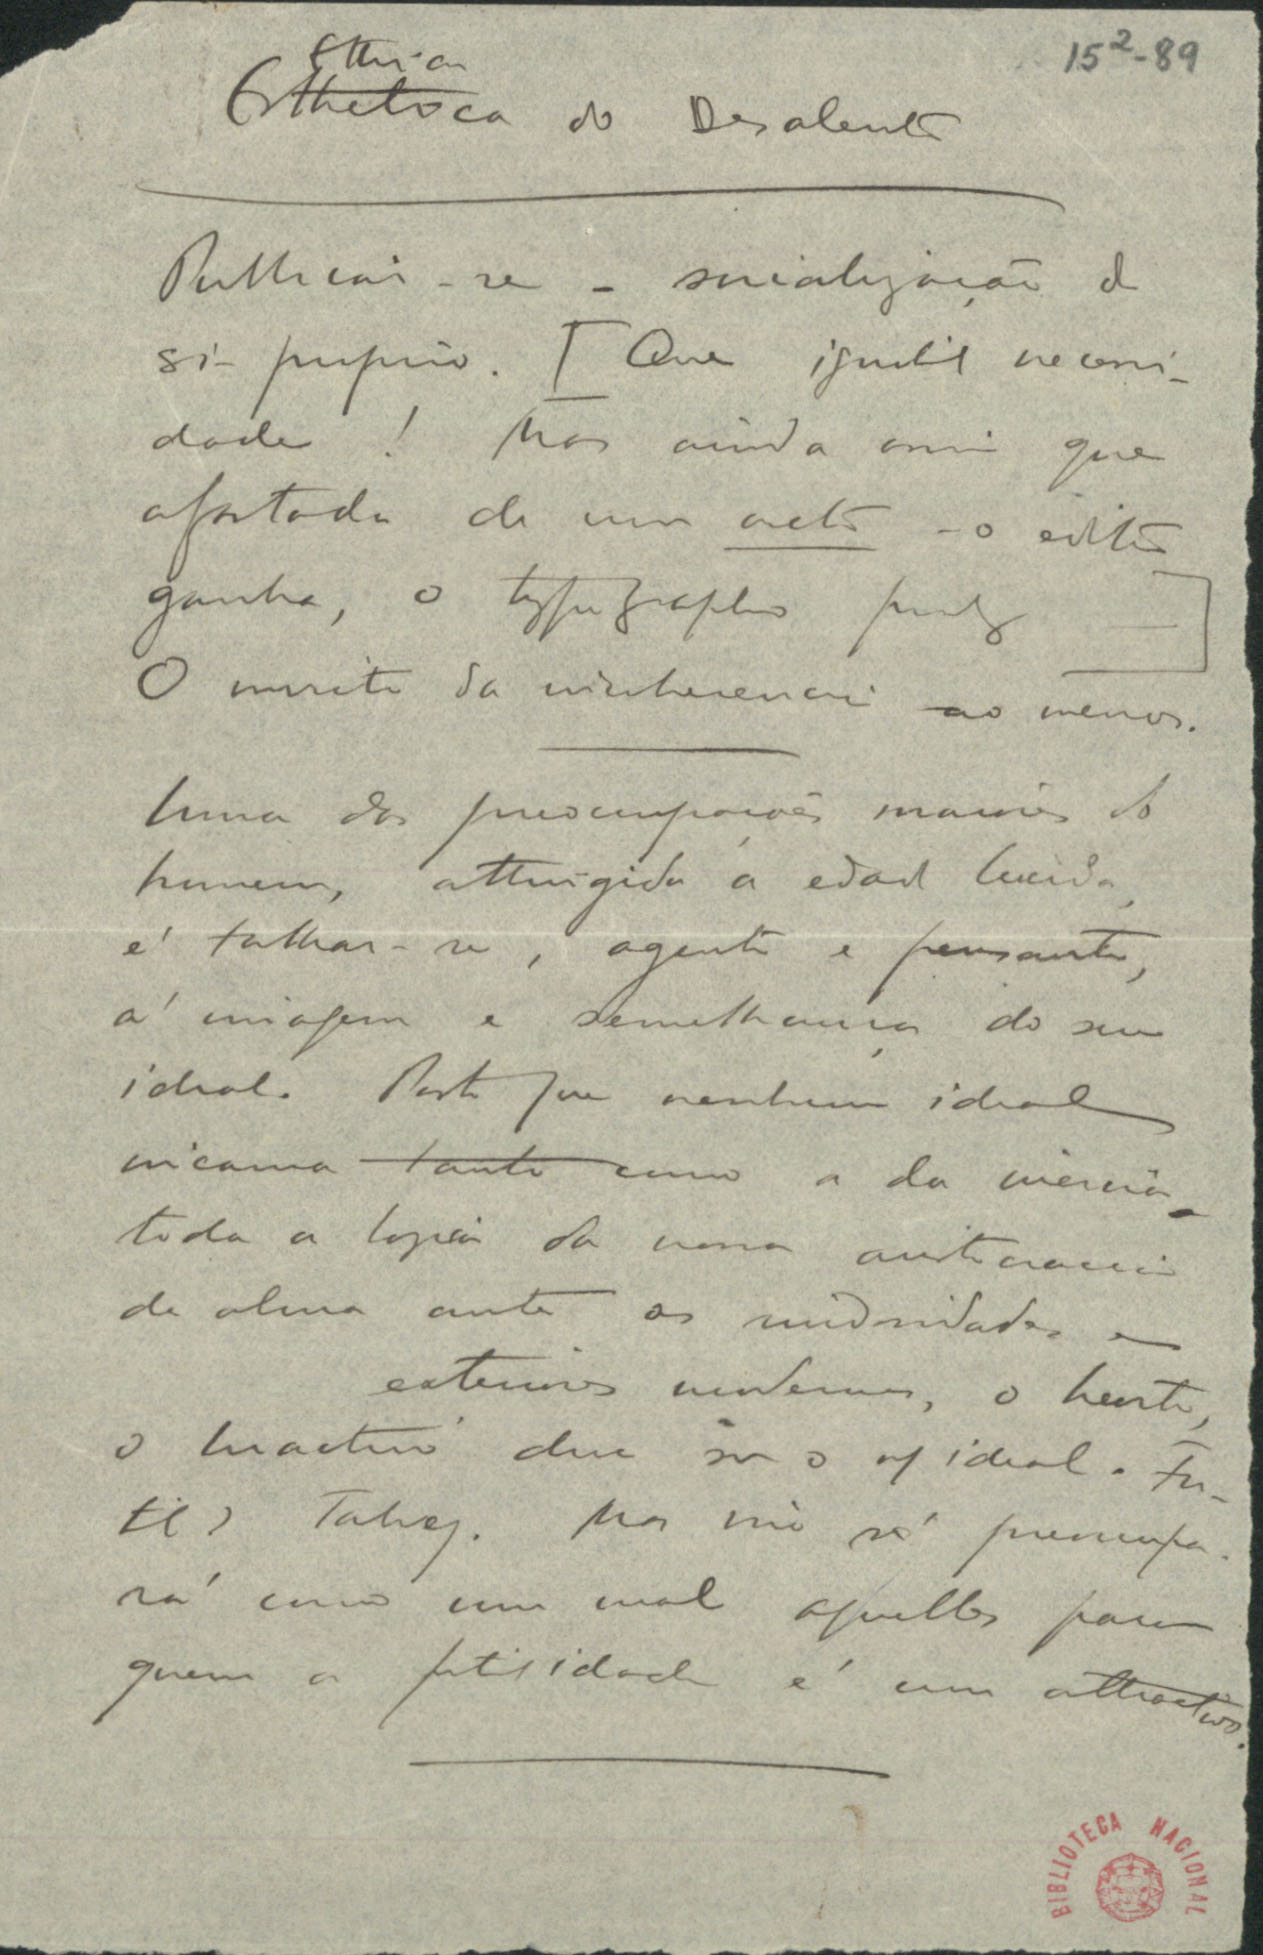 15²-89
Ethica
Esthetica do Desalento
Publicar-se – socialização de
si-proprio. [Que ignobil necessi-
dade! Mas ainda assi que
afastada de um acto – o editor
ganha, o typographo produz —]
O merito da incoherencia ao menos.
Uma das preocupações maiores do
homem, attingida a edade lucida,
é talhar-se, agente e pensante,
á imagem e semelhança do seu
ideal. Posto que nenhum ideal
incarna tanto como o da inercia
toda a logica da nossa aristocracia
de alma ante as e
exteriores modernas, o Inerte,
o Inactivo deve ser o n/ ideal. Fu-
til? Talvez. Mas isso só preocupa-
rá como um mal aquelles para
quem a futilidade é um attractivo.
BIBLIOTECA NACIONAL